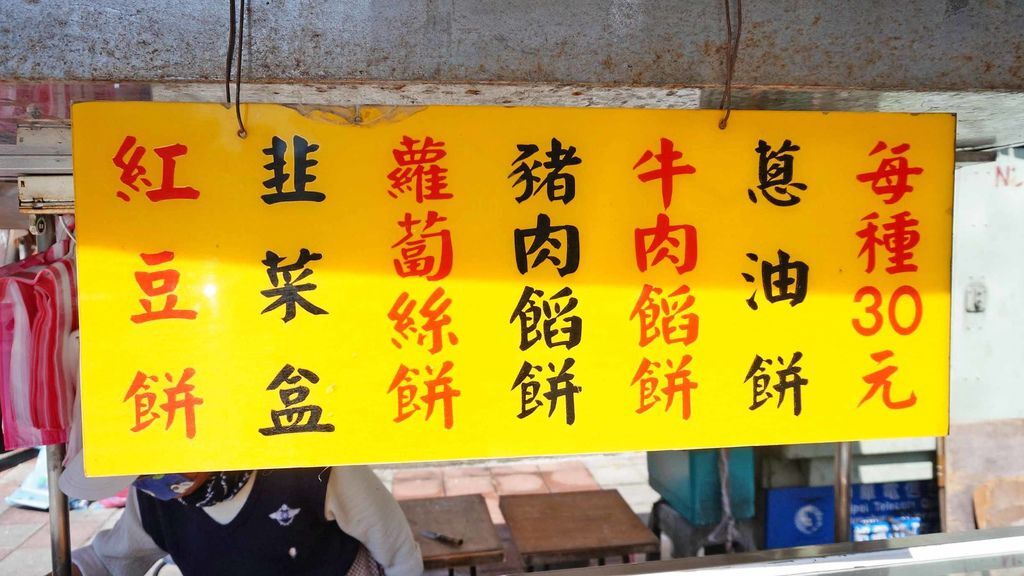 每種30元
蔥油餅
牛肉餡餅
豬肉餡餅
蘿蔔絲餅
韭菜盒
紅豆餅